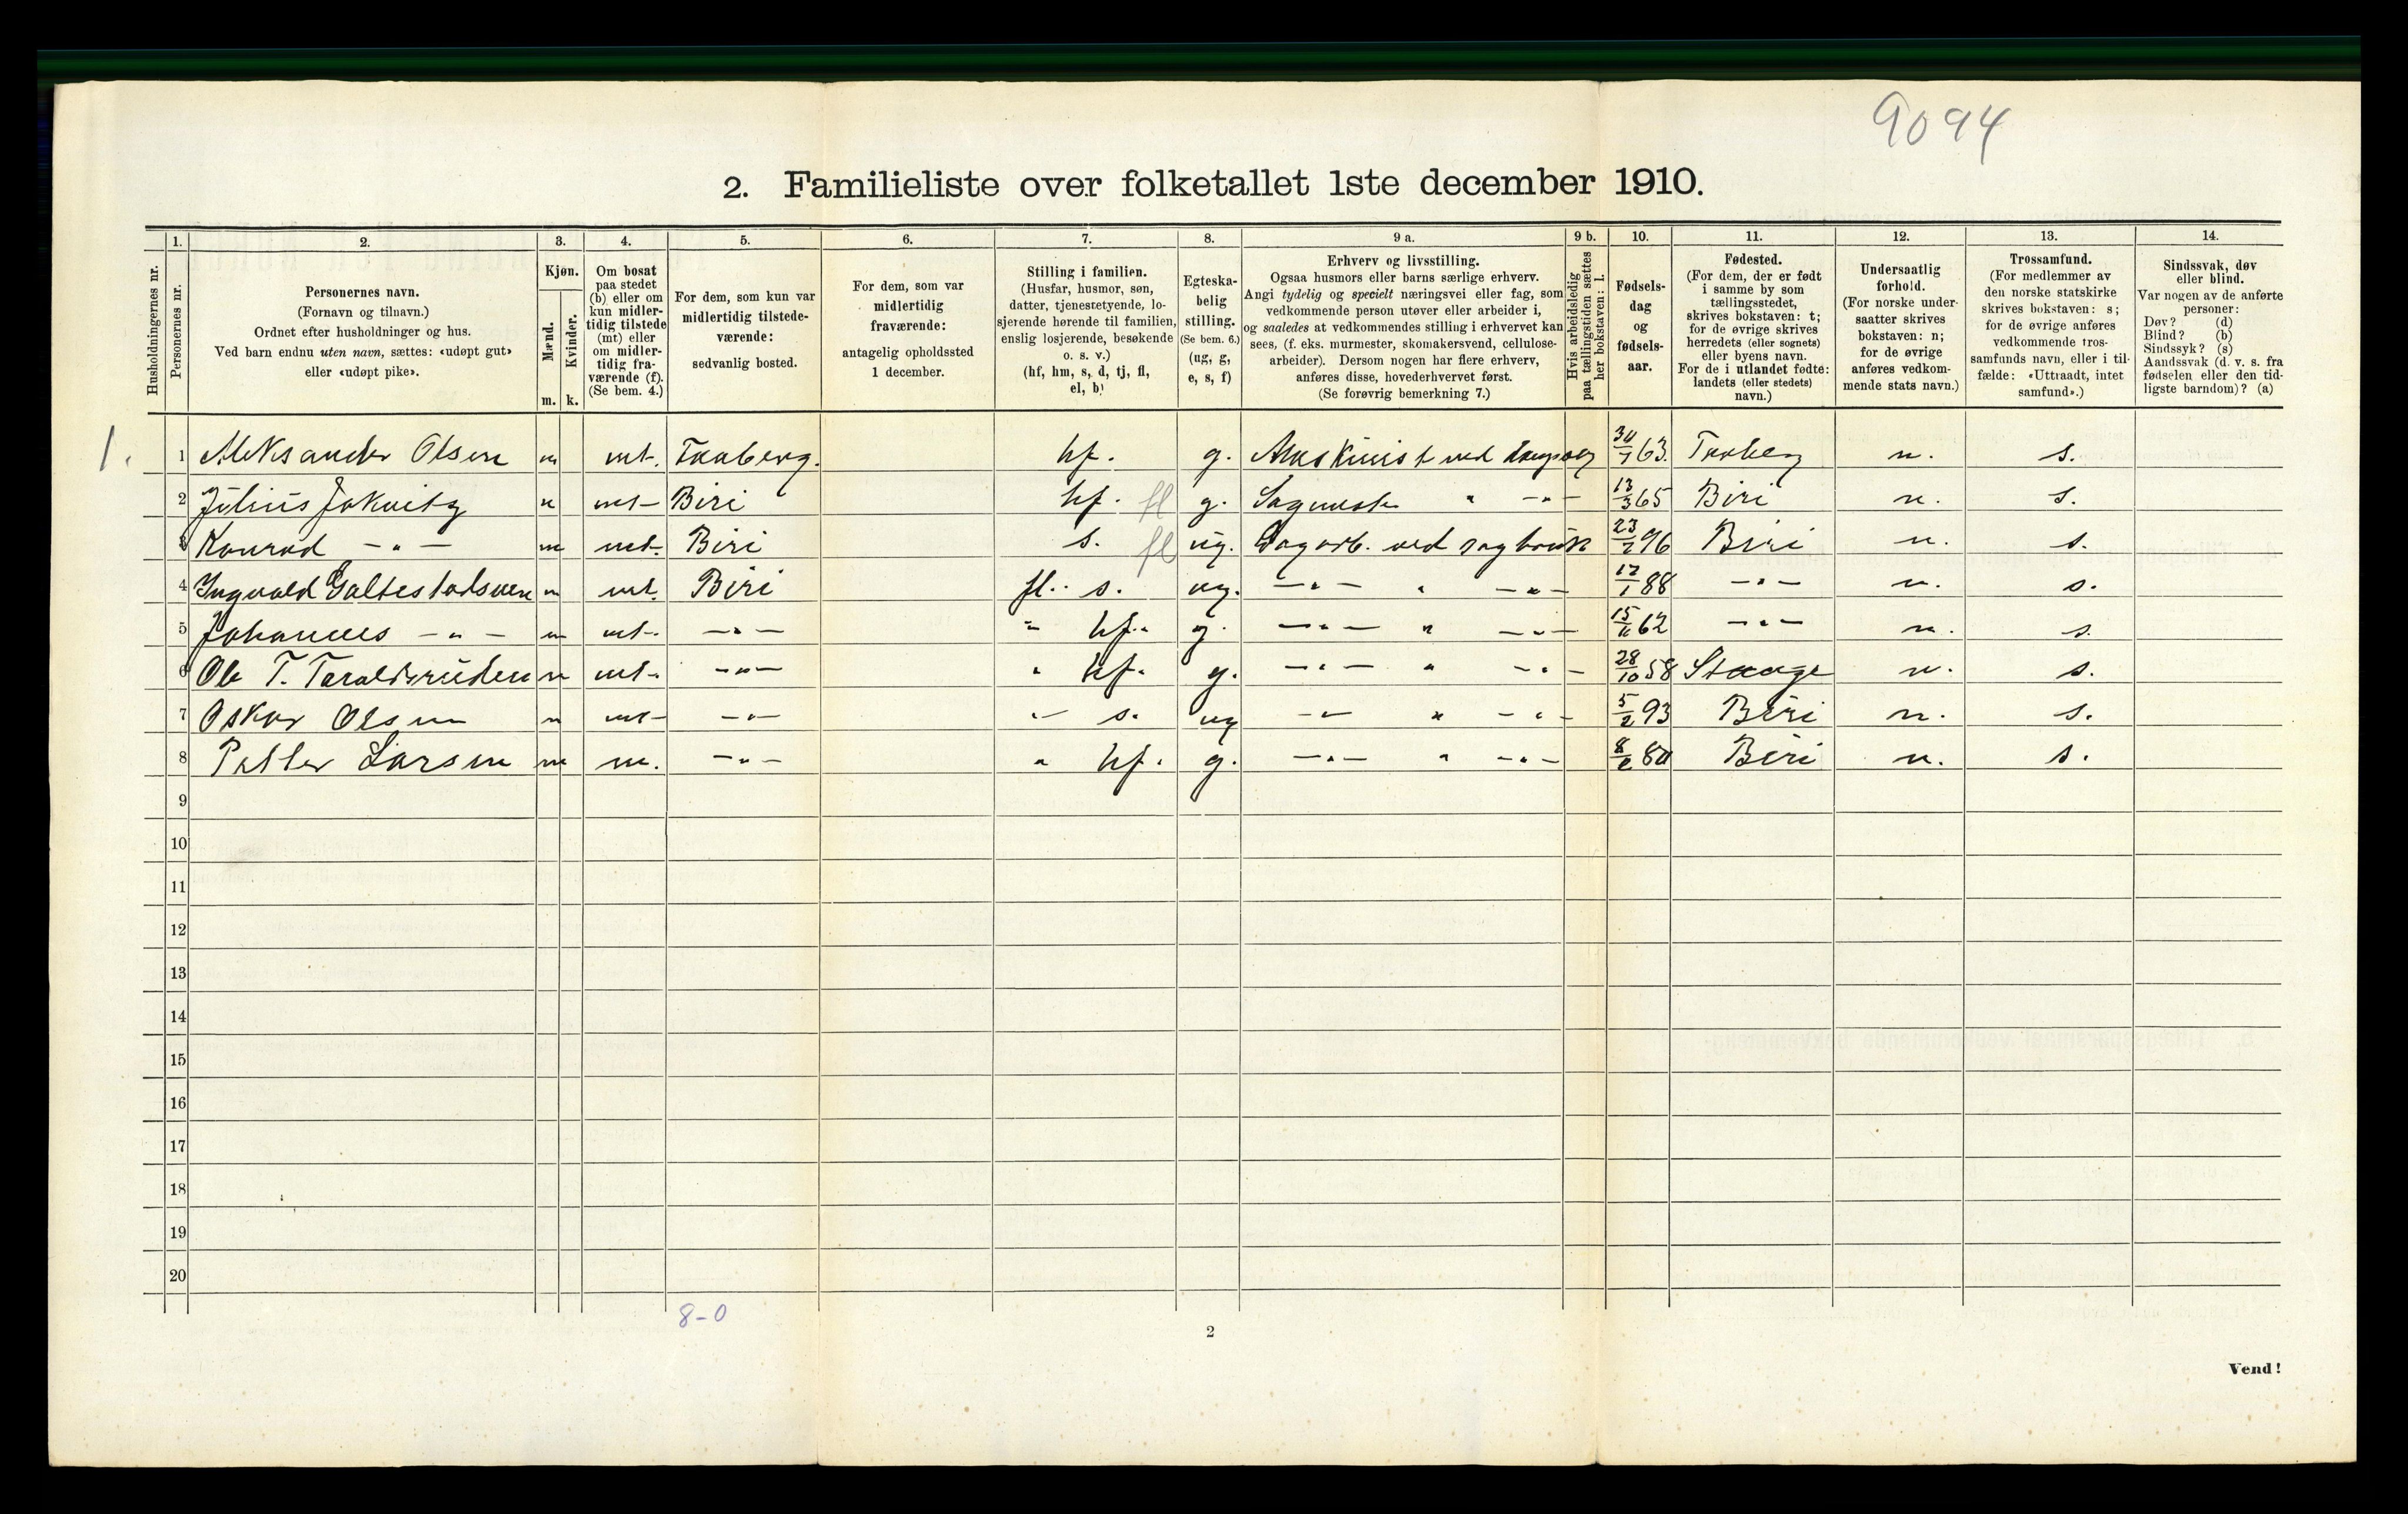 9094
2. Familieliste over folketallet 1ste december 1910.
1. 2. 3. 4. 5. 6. 7. 8. 9 a. 9 b. 10. 11. 12. 13. 14.
Husholdningernes nr.
Personernes nr.
Personernes navn.
(Fornavn og tilnavn.)
Ordnet efter husholdninger og hus.
Ved barn endnu uten navn, sættes: «udøpt gut»
eller «udøpt pike».
Kjøn.
Mænd.
Kvinder.
m. k.
Om bosat
paa stedet
(b) eller om
kun midler-
tidig tilstede
(mt) eller
om midler-
tidig fra-
værende (f).
(Se bem. 4.)
For dem, som kun var
midlertidig tilstede-
værende:
sedvanlig bosted.
For dem, som var
midlertidig
fraværende:
antagelig opholdssted
1 december.
Stilling i familien.
(Husfar, husmor, søn,
datter, tjenestetyende, lo-
sjerende hørende til familien,
enslig losjerende, besøkende
o. s. v.)
(hf, hm, s, d, tj, fl,
el, b)
Egteska-
belig
stilling.
(Se bem. 6.)
(ug, g,
e, s, f)
Erhverv og livsstilling.
Ogsaa husmors eller barns særlige erhverv.
Angi tydelig og specielt næringsvei eller fag, som
vedkommende person utøver eller arbeider i,
og saaledes at vedkommendes stilling i erhvervet kan
sees, (f. eks. murmester, skomakersvend, cellulose-
arbeider). Dersom nogen har flere erhverv,
anføres disse, hovederhvervet først.
(Se forøvrig bemerkning 7.)
Hvis arbeidsledig
paa tællingstiden sættes
her bokstaven: l.
Fødsels-
dag
og
fødsels-
aar.
Fødested.
(For dem, der er født
i samme by som
tællingsstedet,
skrives bokstaven: t;
for de øvrige skrives
herredets (eller sognets)
eller byens navn.
For de i utlandet fødte:
landets (eller stedets)
navn.)
Undersaatlig
forhold.
(For norske under-
saatter skrives
bokstaven: n;
for de øvrige
anføres vedkom-
mende stats navn.)
Trossamfund.
(For medlemmer av
den norske statskirke
skrives bokstaven: s;
for de øvrige anføres
vedkommende tros-
samfunds navn, eller i til-
fælde: «Uttraadt, intet
samfund».)
Sindssvak, døv
eller blind.
Var nogen av de anførte
personer:
Døv? (d)
Blind? (b)
Sindssyk? (s)
Aandssvak (d. v. s. fra
fødselen eller den tid-
ligste barndom)? (a)
1. 1 Aleksander Olsen m mt. Faaberg. hf. g. Maskinist ved 30/7 63. Faaberg n. s.
2 Julius m mt- Biri hf. fl g. Sagmester " -"- 13/3 65 Biri n. s.
3 Konrad -"- m mt- Biri s. fl ug. Dagarb. ved sagbruk 23/2 96 Biri n. s.
4 Ingvald m mt. Biri fl. s. ug. -"- " -"- 17/1 88 -"- n. s.
5 Johannes -"- m mt. -"- " hf. g. -"- " -"- 15/11 62 -"- n. s.
6 Ole T. Taraldsruden m mt. -"- " hf. g. -"- " -"- 28/10 58 Stange n. s.
7 Oskar Olsen m mt- -"- " s. ug -"- " -"- 5/2 93 Biri n. s.
8 Petter Larsen m m. -"- " hf. g. -"- " -"- 8/2 80 Biri n. s.
9
10
11
12
13
14
15
16
17
18
19
20
8-0
2
Vend!